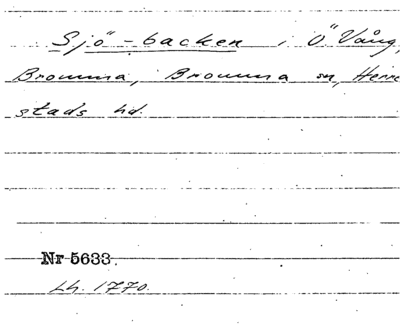 Sjö-backen i Ö Vång,
Bromma, Bromma sn, Herre
stads hd.
Nr 5633.
Lh. 1770.